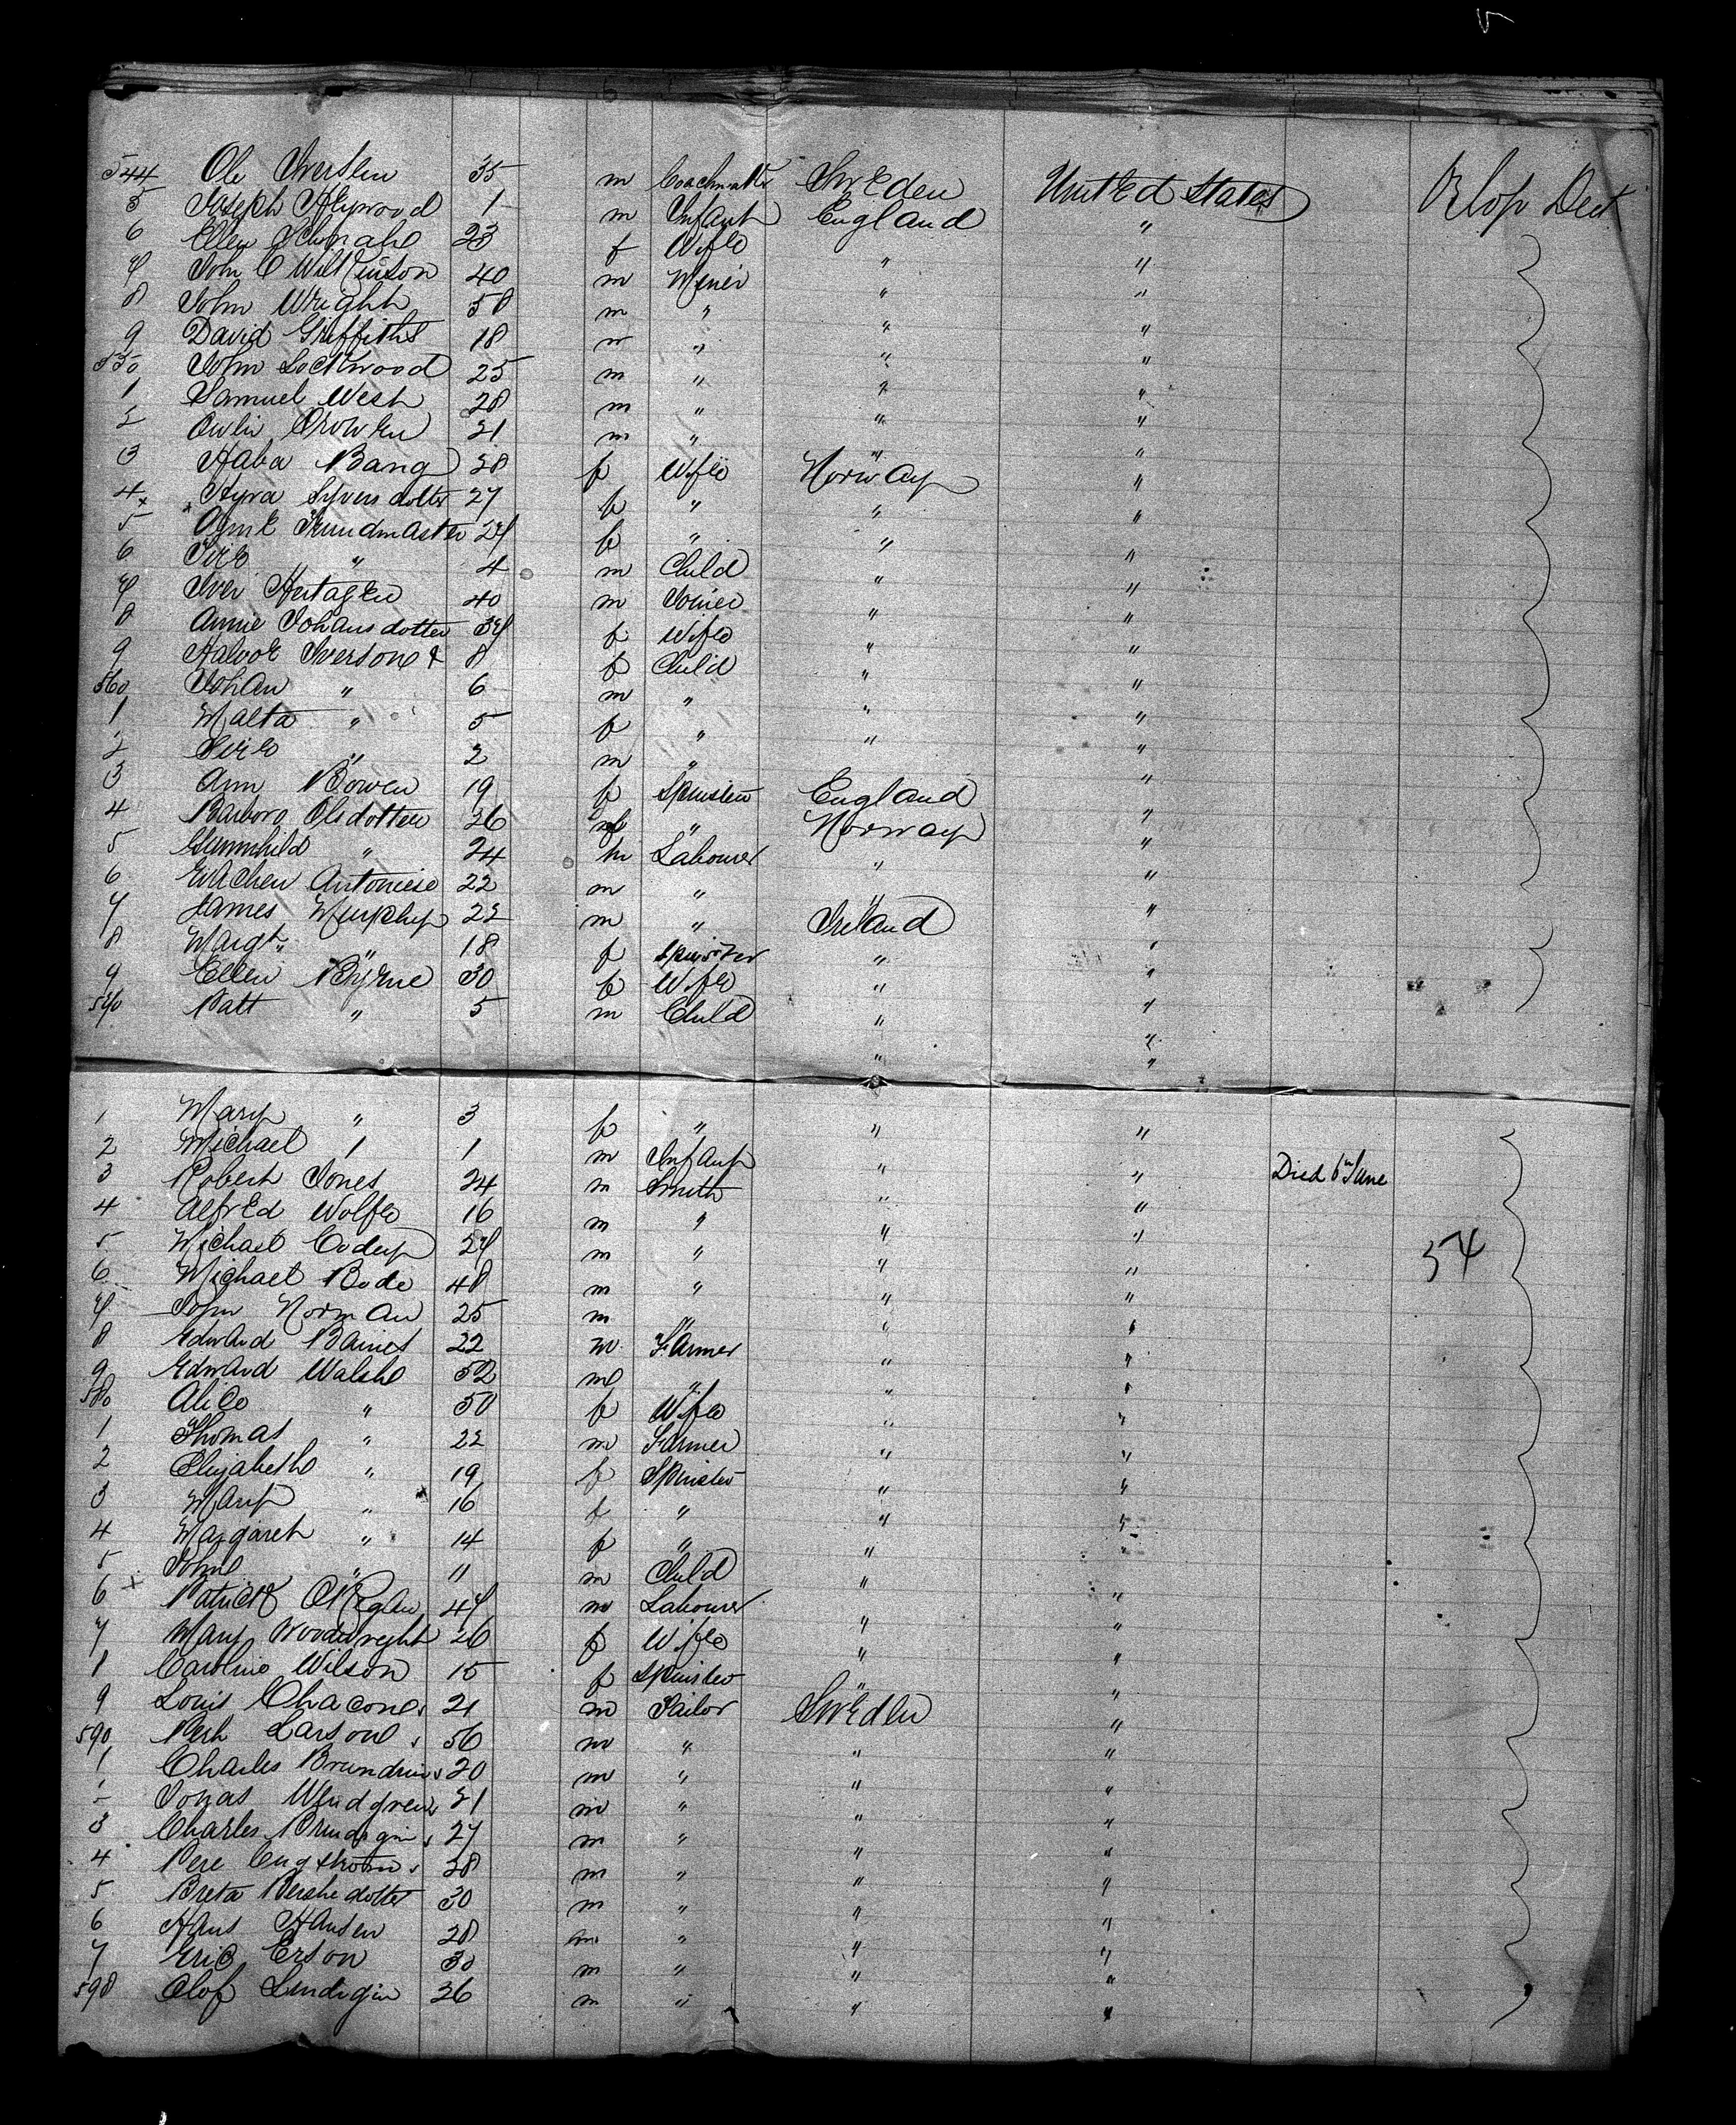 544 Ole Iversen 35 m Coachmaker Sweden United States Orlop Deck
5 Joseph Heywood 1 m Infant England "
6 Ellen 23 f Wife " "
7 John C Wilkinson 40 m Miner " "
8 John Wright 58 m " " "
9 David Griffiths 18 m " " "
550 John Lockwood 25 m " " "
1 Samuel West 28 m " " "
2 21 m " " "
3 Bang 28 f Wife Norway "
4 Syversdotter 27 f " " "
5 27 f " " "
6 " 4 m Child " "
7 Iver 40 m Joiner " "
8 Annie Johansdotter 37 f Wife " "
9 Iversone 8 f Child " "
560 Johan " 6 m " " "
1 Malta " 5 f " " "
2 " 2 m " " "
3 Ann Bowen 19 f Spinster England "
4 Barboro Olsdotter 26 f " Norway "
5 Gunnhild " 24 m Labourer " "
6 22 m " " "
7 James Murphy 22 m " Ireland "
8 Margt " 18 f Spinster " "
9 Ellen Byrne 30 f Wife " "
570 Patt " 5 m Child " "
1 Mary " 3 f " " "
2 Michael " 1 m Infant " " Died 6th June
3 Robert Jones 24 m Smith " "
4 Alfred Wolfe 16 m " " "
5 Michael Codey 27 m " " " 54
6 Michael Bode 48 m " " "
7 John Norman 25 m " " "
8 Edward Baines 22 m Farmer " "
9 Edward Walshe 52 m " " "
580 Alice " 50 f Wife " "
1 Thomas " 22 m Farmer " "
2 Elizabeth " 19 f Spinster " "
3 Mary " 16 f " " "
4 Margaret " 14 f " " "
5 John " 11 m Child " "
6 Patrick O'Regan 47 m Labourer " "
7 Mary Woodwright 26 f Wife " "
8 Caroline Wilson 15 f Spinster " "
9 Louis Chacone 21 m Tailor Sweden "
590 Perh Larsone 56 m " " "
1 Charles 20 m " " "
2 Jonas 21 m " " "
3 Charles 27 m " " "
4 Pere Engstrom 28 m " " "
5 Breta 30 m " " "
6 Hans Hansen 28 m " " "
7 Eric Erson 30 m " " "
598 Olof 36 m " " "